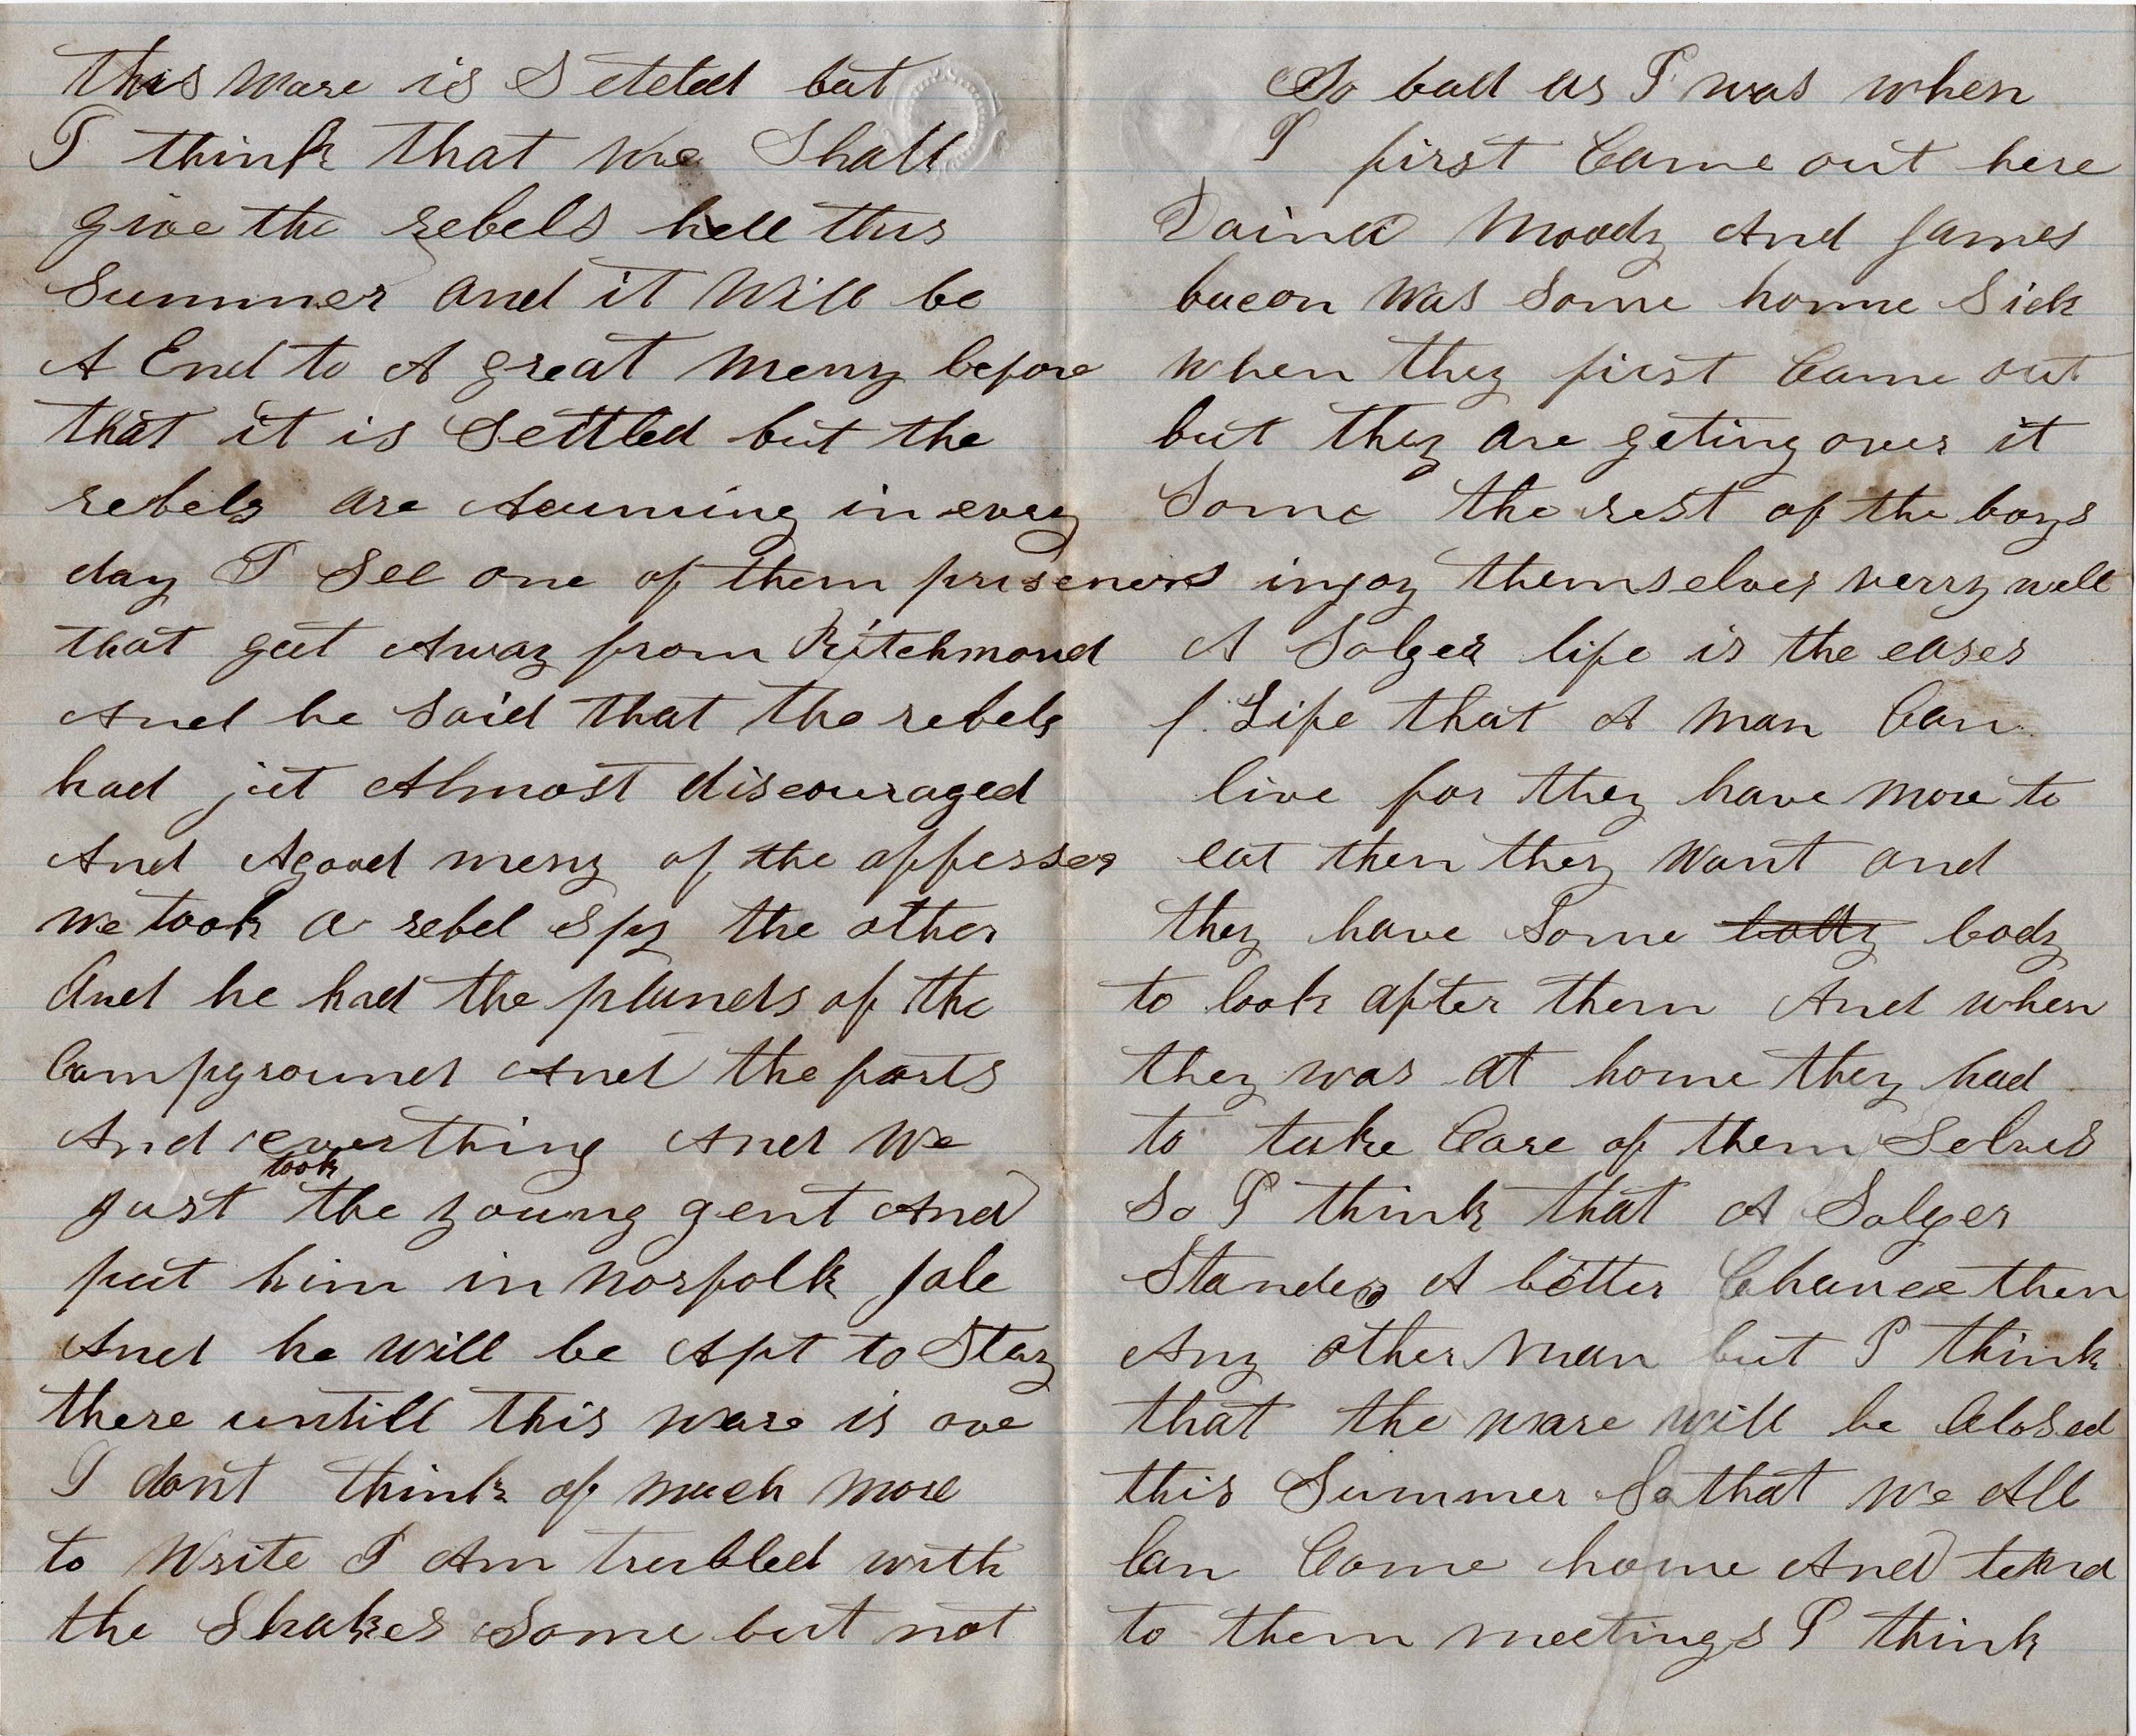 this ware is Seteled but
I think that we Shall
give the rebels hell this
Summer and it Will be
A End to A great meny before
that it is Settled but the
rebels are Acuming in every
day I See one of them priseners
that gut Away from Ritchmond
And he Said that the rebels
had jut Almost discouraged
And Agood meny of the offesser
we took a rebel Spy the other
And he had the plunds of the
Campground And the forts
And everthing And We
just took the young gent And
put him in Norfolk Jale
And he will be Apt to Stay
there untill this ware is ove
I dont think of much more
to Write I Am trubbled with
the Shakes Some but not
So bad as I was when
I first Came out here
Moody And James
bacon Was Some home Sick
When they first Came out
but they are geting over it
Some the rest of the boys
injoy themselves verry well
A Solger life is the eases
Life that A man Can
live for they have more to
eat then they Want and
they have Some body
to look after them And when
they was at home they had
to take Care of them Selves
So I think that A Solger
Standes A better Chance then
Any other man but I think
that the ware will be Closed
this Summer So that we All
Can Come home And tend
to them meetings I think